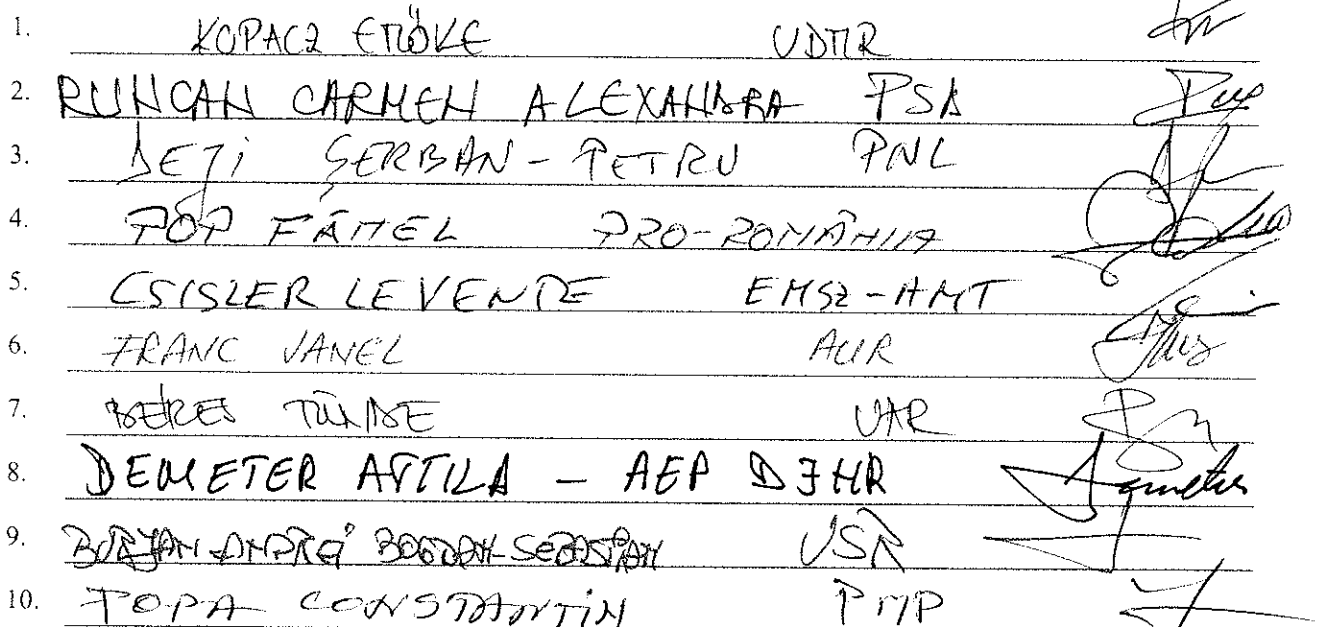 1. KOPACZ ETTÖKE UDMR
2. RUNCAN CARMEN ALEXANDRA PSD
3. DEJI ȘERBAN-PETRU PNL
4. POP FĂMEL PRO-ROMÂNIA
5. CSISZER LEVENTE EMSZ-AMT
6. FRANC VANEL AUR
7. BÉRES TÜNDE
8. DEMETER ATTILA - AEP DJHR
9. BORJAN ANDREI BOGDAN-SEBASTIAN USR
10. POPA CONSTANTIN PMP